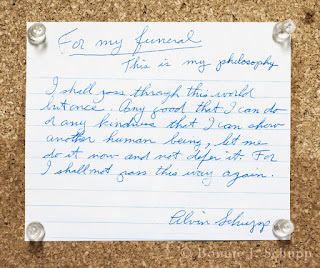 For my funeral
This is my philosophy
I shall pass through this world
but once. Any good that I can do
or any kindness that I can show
another human being, let me
do it now and not defer it. For
I shall not pass this way again.
Alvin Schupp
© Bonnie J. Schupp